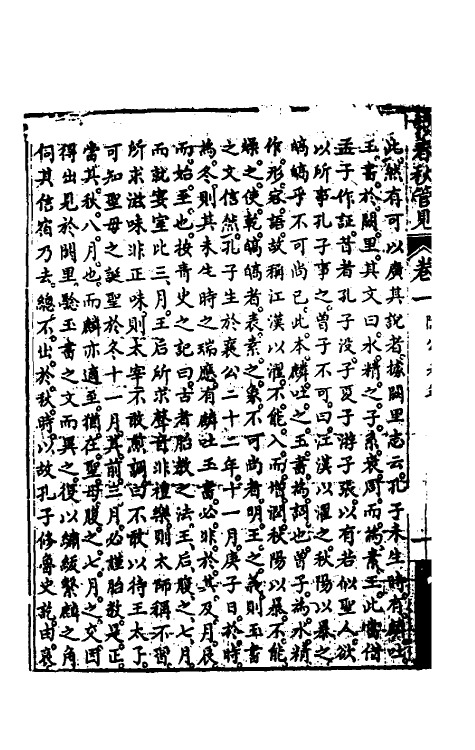 春秋管見 卷一
此然有可以廣其說者據闕里志云孔子未生時有麟吐
玉書於闕里其文曰水精之子系衰周而為素王此當借
孟子作証昔者孔子没子夏子游子張以有若似聖人欲
以所事孔子事之曾子不可曰江漢以濯之秋陽以暴之
皜皜乎不可尚已此本麟吐之玉書為詞也曾子為水精
作形容語故稱江漢以濯不能入而增潤秋陽以暴不能
燥之使乾皜皜者表素之象不可尚者明王之義則玉書
之文信然孔子生於襄公二十二年十一月庚子日於時
為冬則其未生時之瑞應有麟吐玉書必非於其及月辰
而始至也按青史之記曰古者胎教之法王后腹之七月
而就宴室此三月王后所求聲音非禮樂則太師稱不習
所求滋味非正味則太宰不敢煎調曰不敢以待王太子
可知聖母之誕聖於冬十一月其前三月必謹胎教是正
當其秋八月也而麟亦適至猶在聖母腹之七月之交因
得出見於闕里聖玉書之文而異之復以繡紱繫麟之角
伺其信宿乃去總不出於秋時以故孔子修魯史託由哀